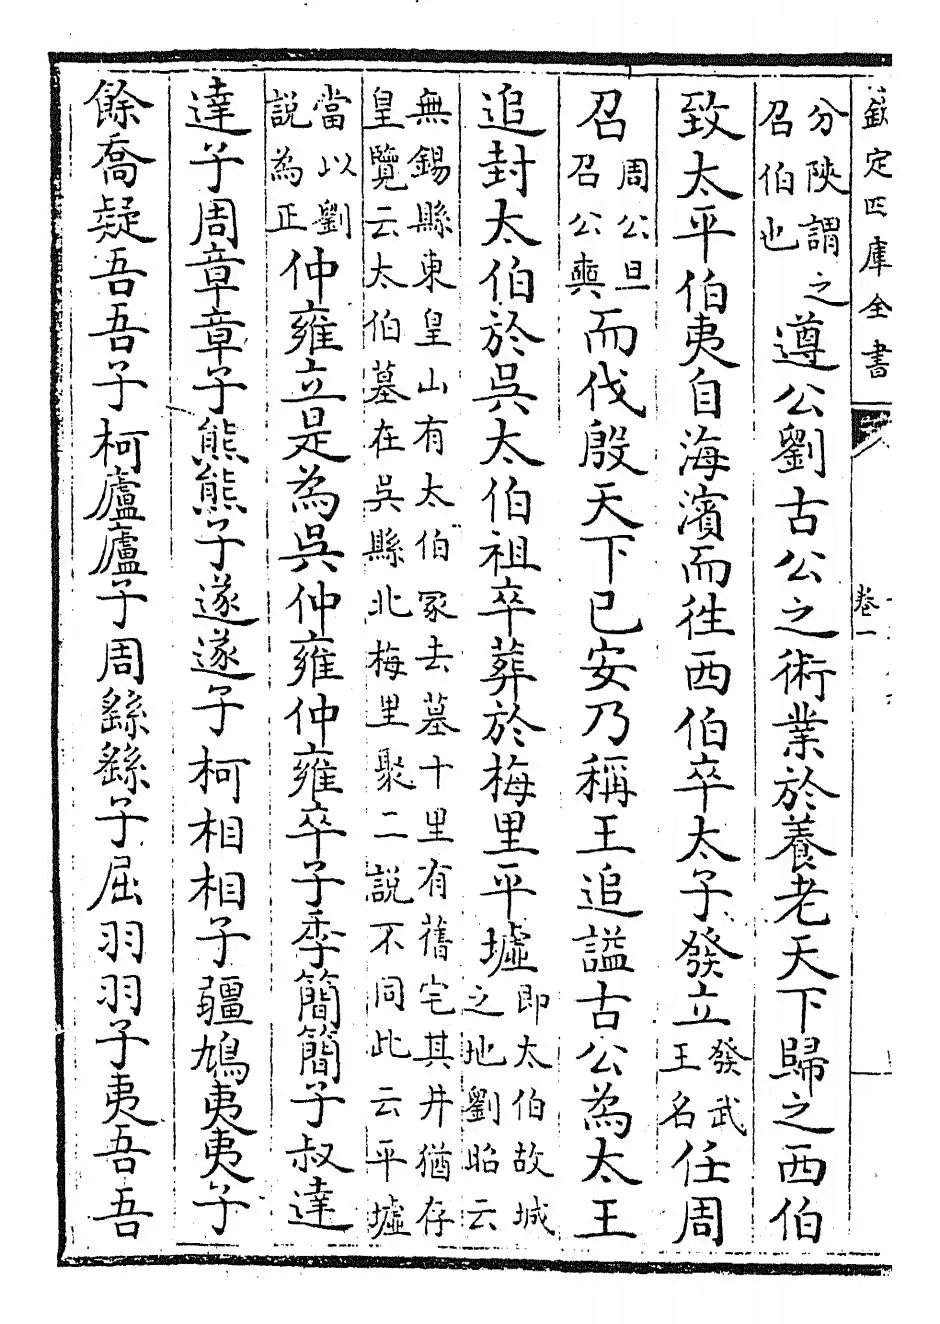 欽定四庫全書
卷一
分陜謂之
召伯也
遵公劉古公之術業於養老天下歸之西伯
致太平伯夷自海濱而徃西伯卒太子發立
發武
王名
任周
召
周公旦
召公奭
而伐殷天下已安乃稱王追謚古公為太王
追封太伯於吳太伯祖卒葬於梅里平墟
即太伯故城
之地劉昭云
無錫縣東皇山有太伯冢去墓十里有舊宅其井猶存
皇覽云太伯墓在吳縣北梅里聚二說不同此云平墟
當以劉
說為正
仲雍立是為吳仲雍仲雍卒子季簡簡子叔達
達子周章章子熊熊子遂遂子柯相相子疆鳩夷夷子
餘喬疑吾吾子柯廬廬子周繇繇子屈羽羽子夷吾吾